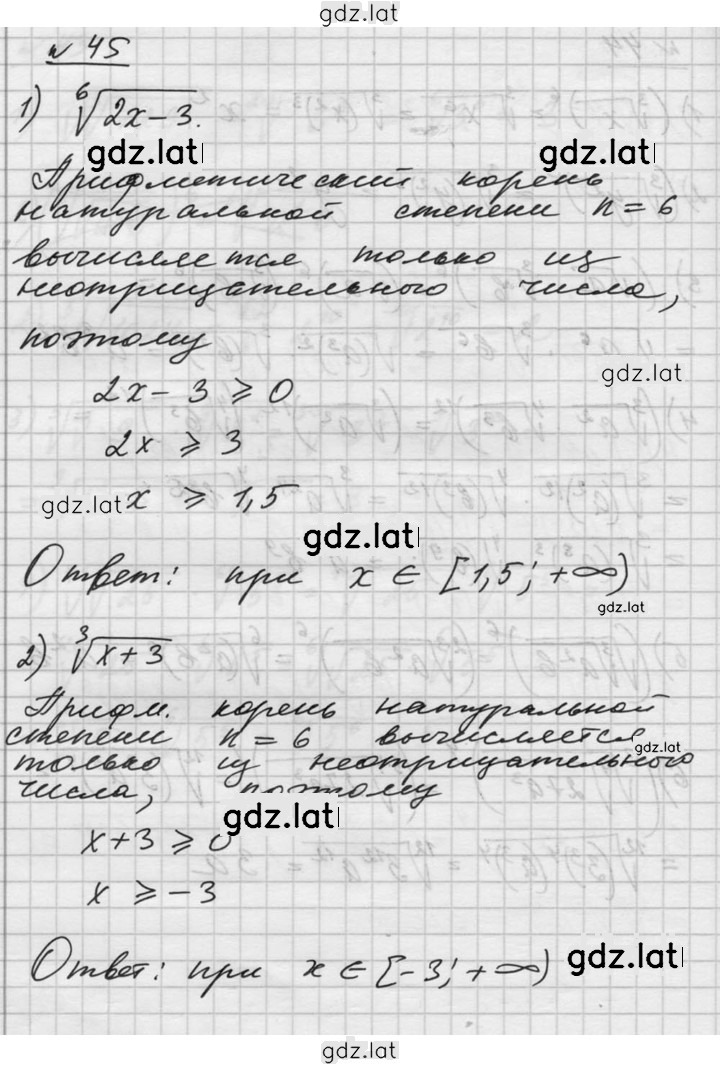 gdz.lat
№ 45
1) ⁶√2x-3.
gdz.lat gdz.lat
Арифметический корень
натуральной степени n = 6
вычисляется только из
неотрицательного числа,
поэтому
gdz.lat
2x - 3 ⩾ 0
2x ⩾ 3
gdz.lat x ⩾ 1,5
gdz.lat
Ответ: при x ∈ [1,5; +∞)
gdz.lat
2) ³√x+3
Арифм. корень натуральной
степени n = 6 вычисляется
gdz.lat
только из неотрицательного
числа, поэтому
gdz.lat
x+3 ⩾ 0
x ⩾ -3
Ответ: при x ∈ [-3; +∞)
gdz.lat
gdz.lat